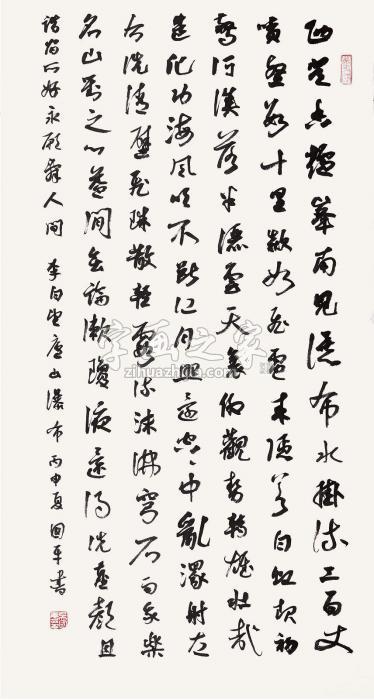 西登香爐峯南見瀑布水掛流三百丈
噴壑數十里欻如飛電來隱若白虹起初
驚河漢落半灑雲天裏仰觀勢轉雄壯哉
造化功海風吹不斷江月照還空〻中亂潀射左
右洗清壁飛珠散輕霞流沫沸穹石而我樂
名山對之心益閒無論漱瓊液還得洗塵顏且
諧宿所好永願辭人間 李白望廬山瀑布 丙申夏 國平書
字画之家